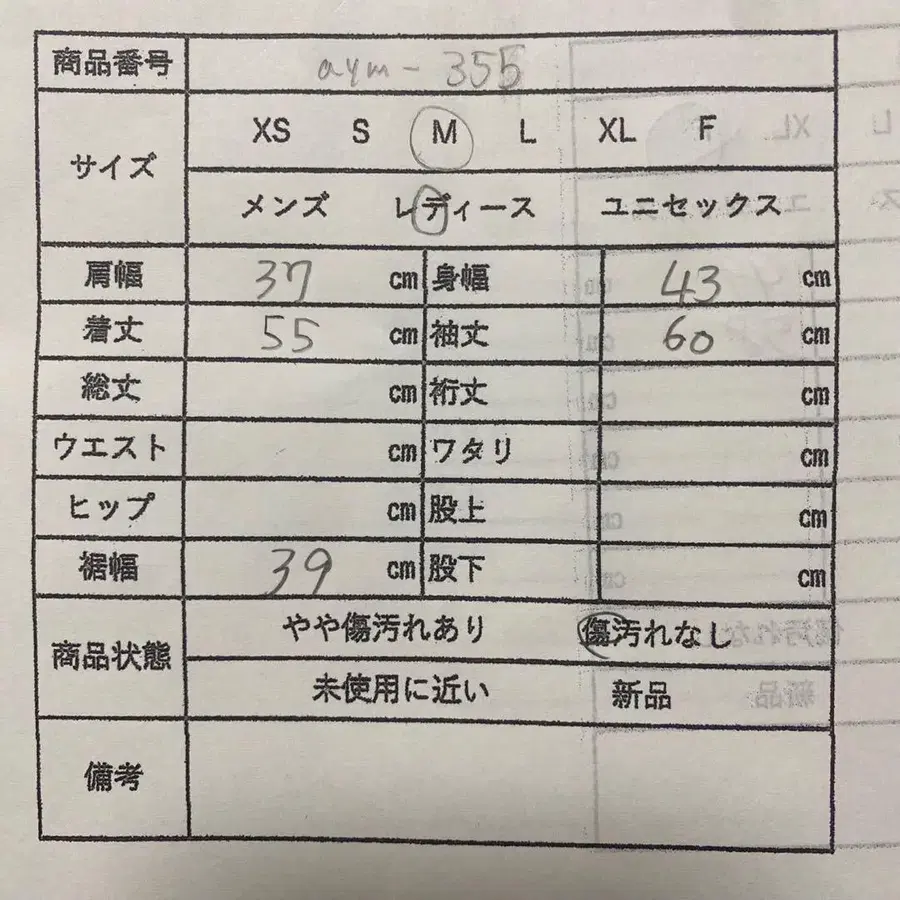 商品番号 aym-355
サイズ XS S M L XL F
メンズ レディース ユニセックス
肩幅 37 cm 身幅 43 cm
着丈 55 cm 袖丈 60 cm
総丈 cm 裄丈 cm
ウエスト cm ワタリ cm
ヒップ cm 股上 cm
裾幅 39 cm 股下 cm
商品状態 やや傷汚れあり 傷汚れなし
未使用に近い 新品
備考